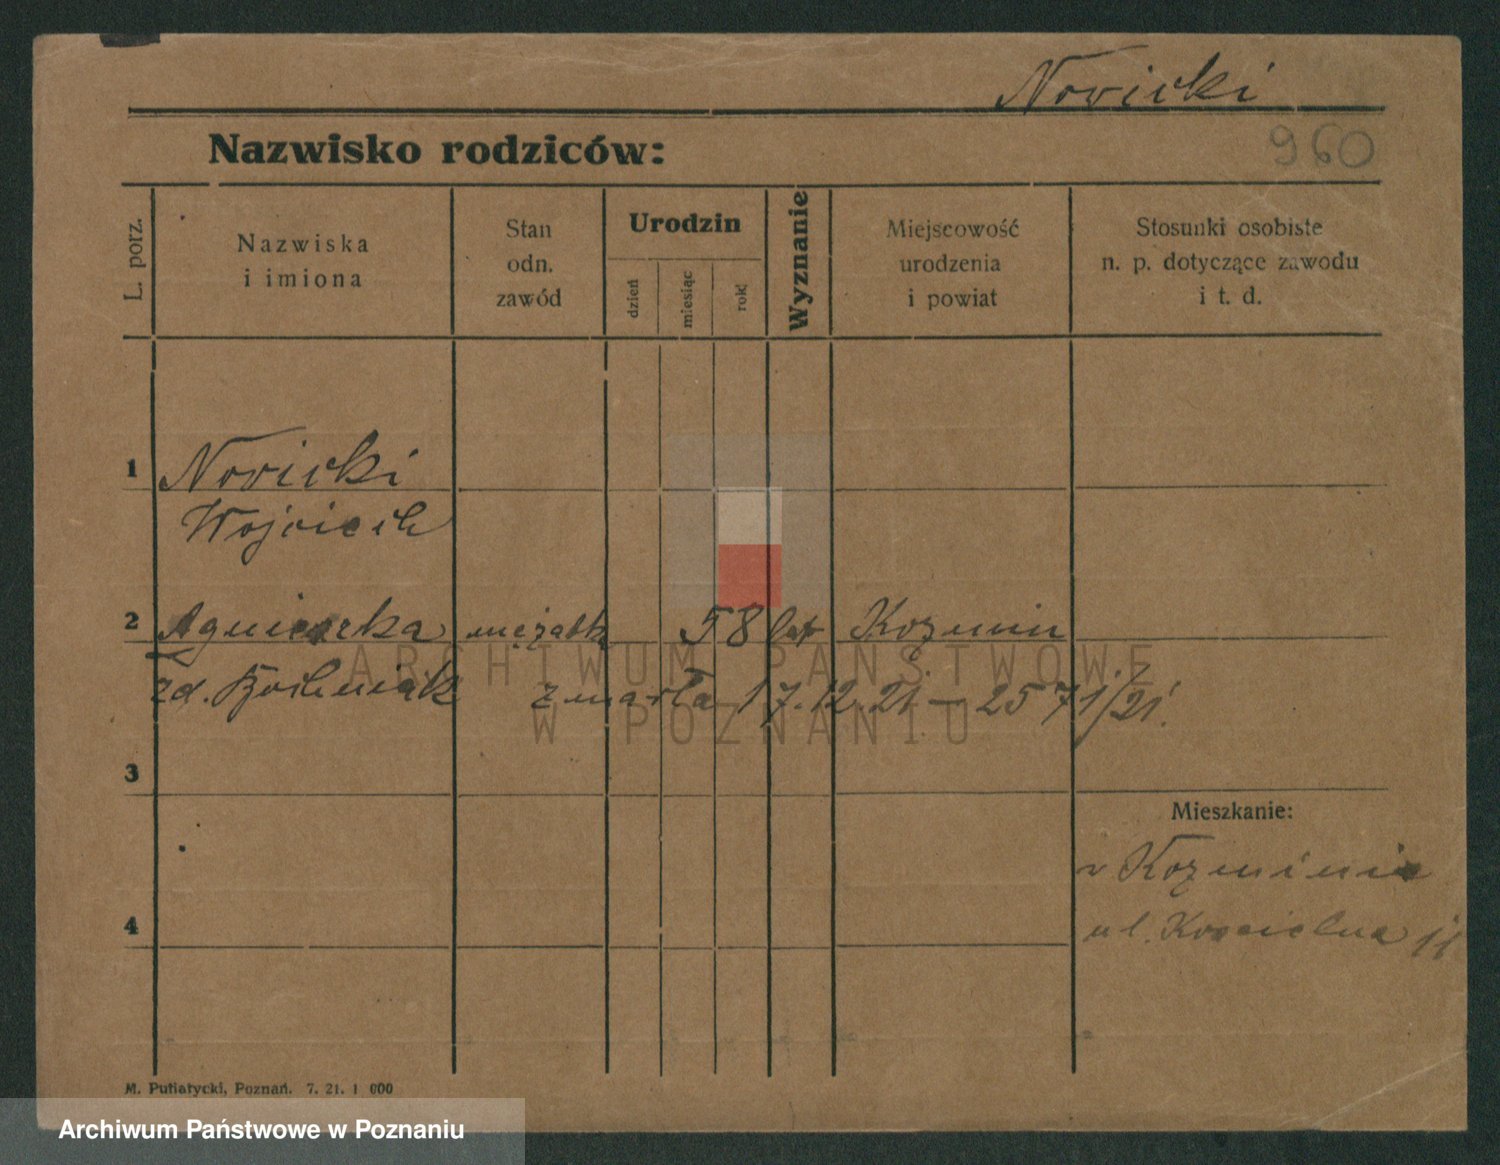 Nowicki
960
Nazwisko rodziców:
L. porz.
Nazwiska
i imiona
Stan
odn.
zawód
Urodzin
dzień
miesiąc
rok
Wyznanie
Miejscowość
urodzenia
i powiat
Stosunki osobiste
n. p. dotyczące zawodu
i t. d.
1 Nowicki
Wojciech
2 Agnieszka mężatk 58 lat Kozmin
zd. zmarła 17.12.21 – 2571/21.
ARCHIWUM PAŃSTWOWE
W POZNANIU
3
Mieszkanie:
w Kozminie
4 ul. Koscielna 11
M. Putiatycki, Poznań. 7. 21. 1 000
Archiwum Państwowe w Poznaniu